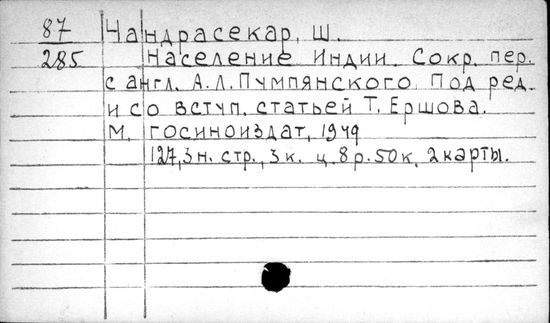 87 Чандрасекар, Ш.
285 Население Индии. Сокр. пер.
с англ. А.Л. Пумпянского. Под ред.
и со вступ. статьей Т. Ершова.
М. госиноиздат, 1949
127, 3 н. стр., 3 к. ц. 8 р. 50 к. 2 карты.